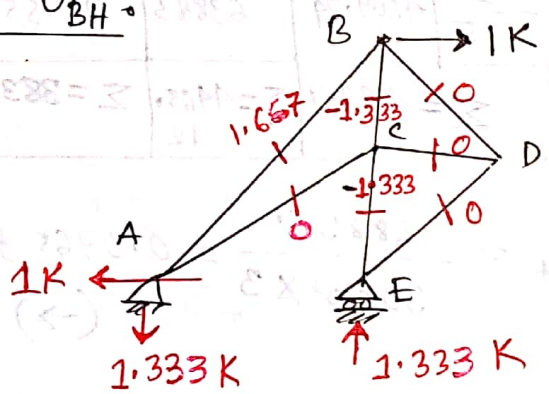 δBH :
B
1K
1.667
-1.333
0
C
0
D
-1.333
0
0
A
1K
E
1.333 K
1.333 K